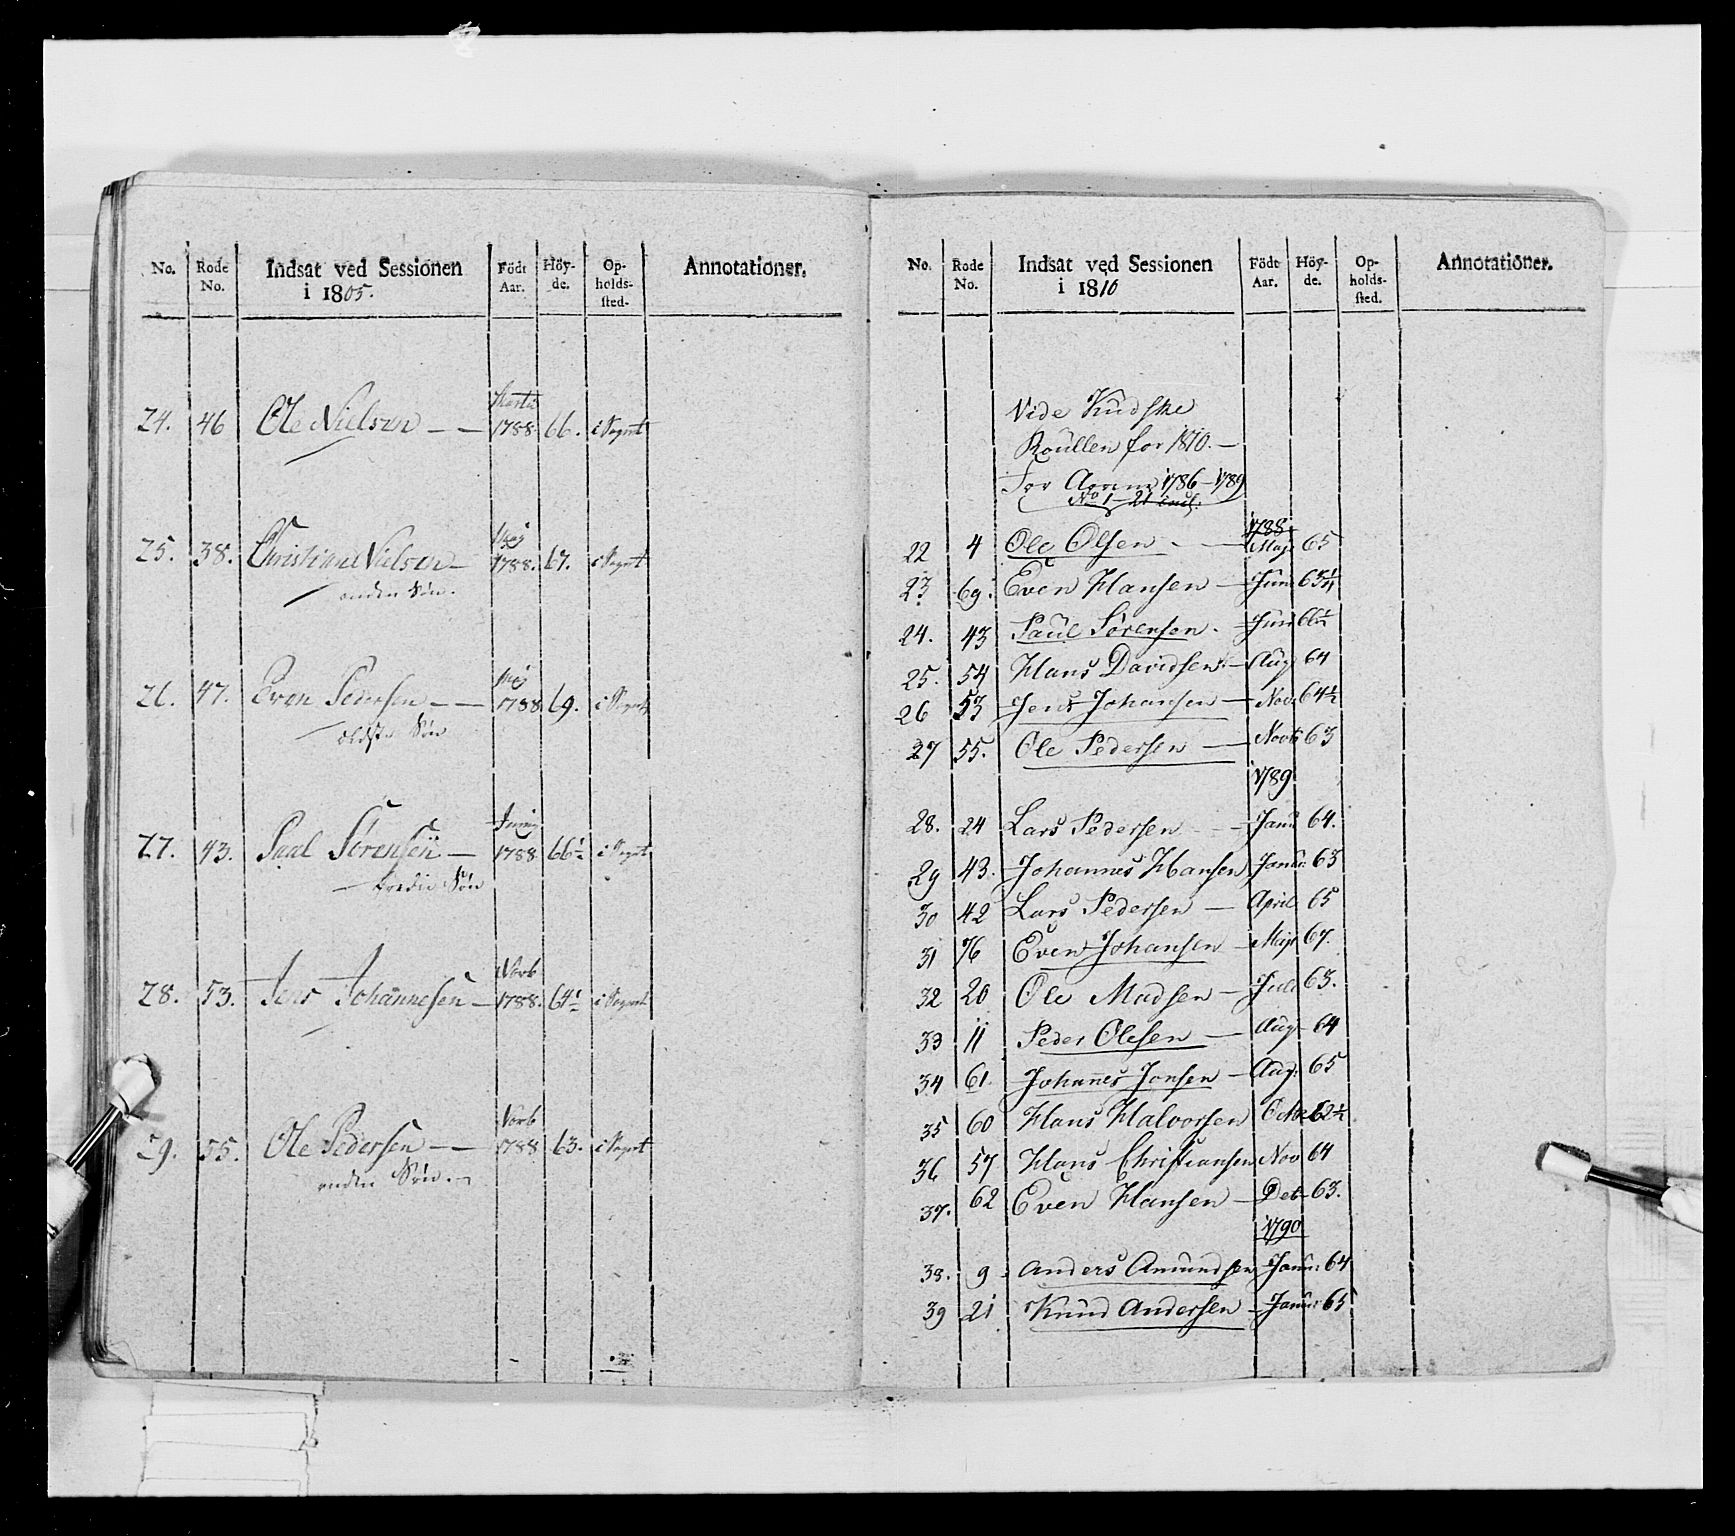 No. Rode No. Indsat ved Sessionen i 1805. Födt Aar. Höy-de. Op-holds-sted. Annotationer.
Martii
24. 46 Ole Nielsen — — 1788. 66. i Sognet
Maj
25. 38. Christian Nielsen — 1788. 67. i Sognet
anden Søn.
Maj
26. 47. Even Pedersen — — 1788 69. i Sognet
ældste Søn
Junij
27. 43. Paal Sørensen — 1788 66½ i Sognet
tredie Søn
Novb
28. 53. Jens Johannesen — 1788. 64½ i Sognet
Novb
29. 55. Ole Pedersen — — 1788 63. i Sognet
anden Søn. —
No. Rode No. Indsat ved Sessionen i 1810 Födt Aar. Höy-de. Op-holds-sted. Annotationer.
Vide
Roullen for 1810. —
For Aarene 1786 — 1789
No 1 — 21 incl.
1788
22 4 Ole Olsen — Maji 65
23 69. Even Hansen — Juni 65¼
24. 43 Paul Sørensen. — Juni 66½
25. 54 Hans Davidsen — Aug 64
26 53 Jens Johansen — Nov. 64½
27 55. Ole Pedersen — Novb 63
1789
28. 24 Lars Pedersen — Janu 64.
29 43. Johannes Hansen Janu: 63
30 42 Lars Pedersen — April 65
31 76 Even Johansen — Maji 67.
32 20 Ole Madsen — Juli 63.
33 11 Peder Olesen — Aug 64
34 61. Johannes Jonsen — Aug: 65
35 60 Hans Halvorsen Octb 62½
36 57 Hans Christiansen Nov 64
37. 62 Even Hansen — Det 63.
1790
38. 9 Anders Amundsen Janu: 64
39 21 Knud Andersen — Janu: 65